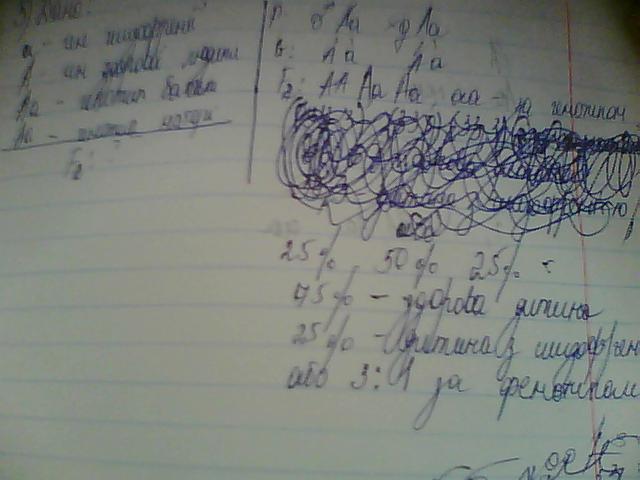 5) Дано:
а - ген шизофренії
А - ген здорової людини
Аа - генотип батька
Аа - генотип матері
F₂: ?
P: ♂ Аа × ♀ Аа
G: А а А а
F₂: АА Аа Аа, аа - за генотипом
або
25% 50% 25%
75% - здорова дитина
25% - дитина з шизофрен
або 3:1 за фенотипом